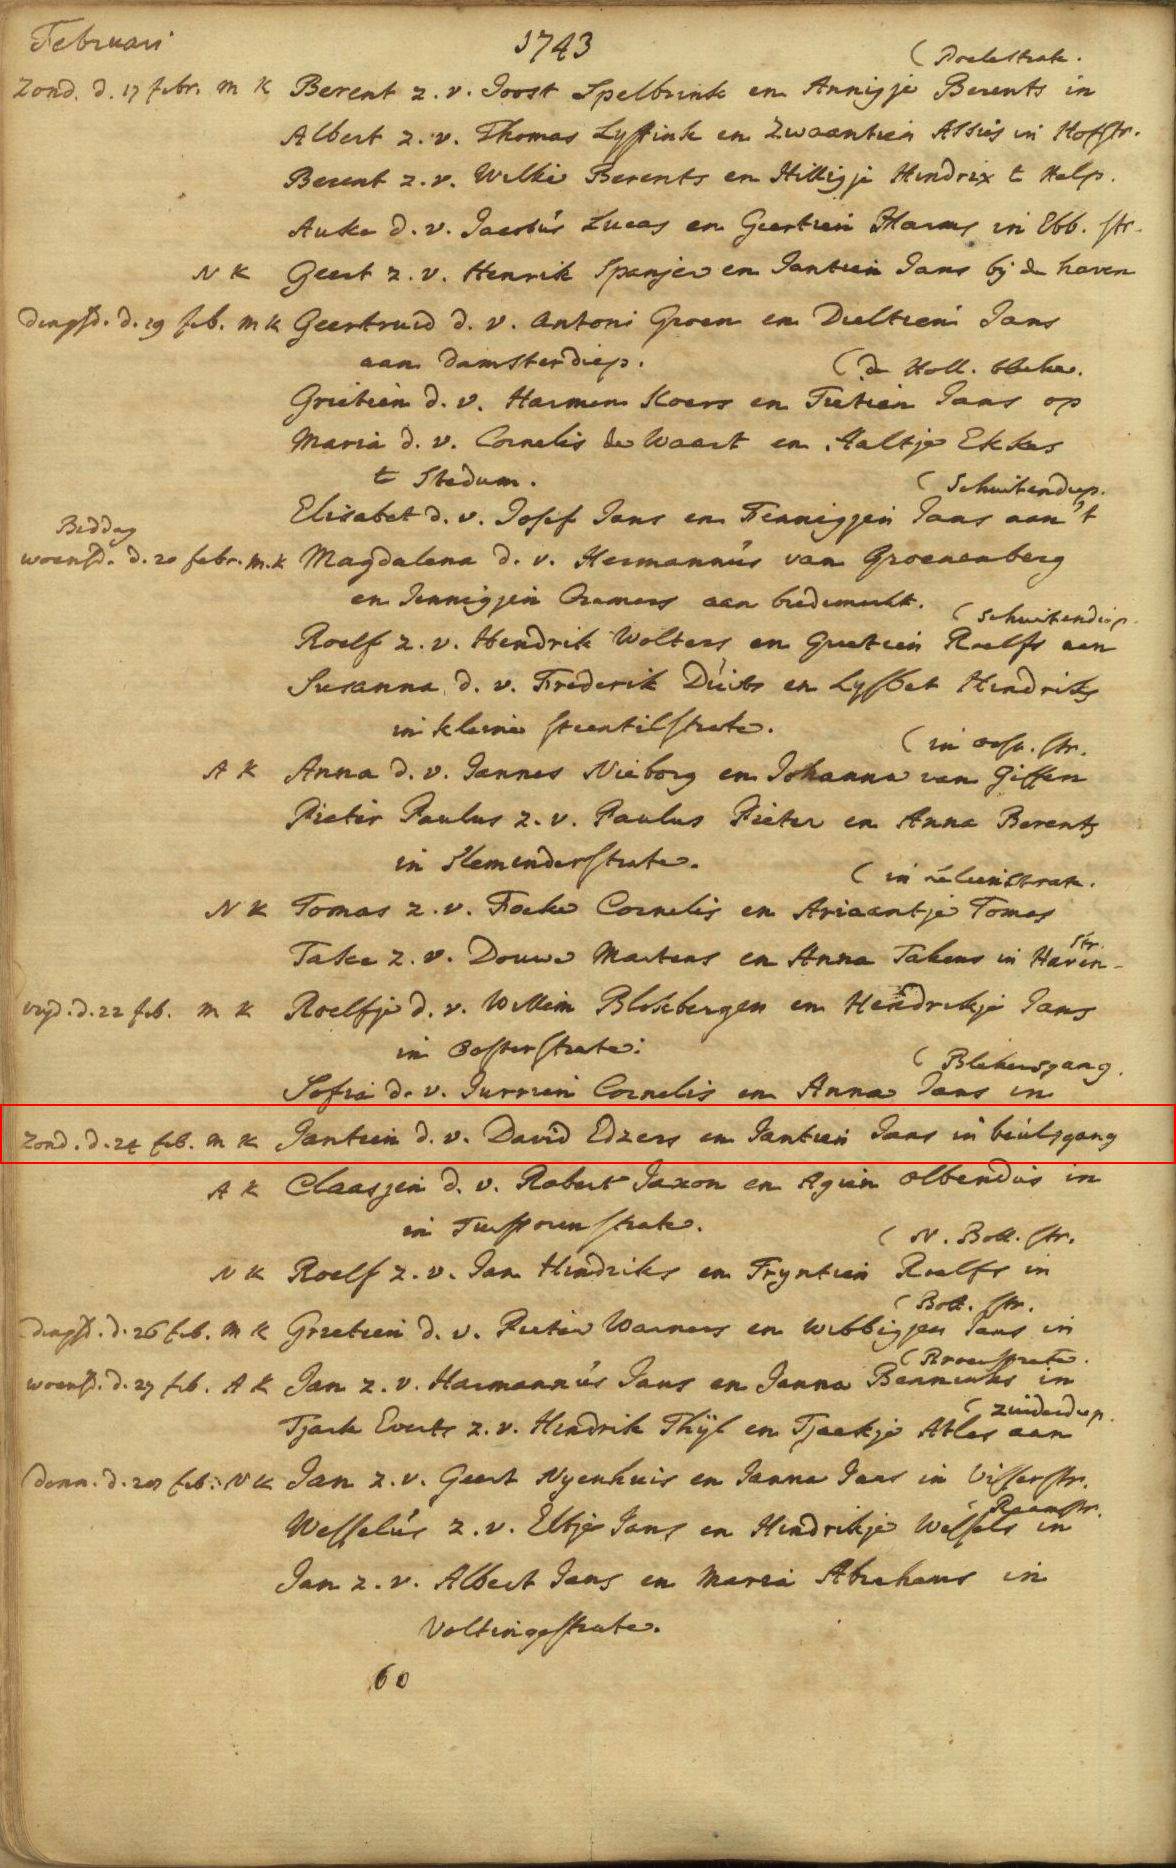 Februari 1743
(Poelestrate.
Zond. d. 17 febr. m K Berent z. v. Joost Spelbrink en Annigje Berents in
Albert z. v. Thomas Lyffink en Zwaantien Assies in Hofstr.
Berent z. v. Wilke Berents en Hilligje Hindrix t Help.
Auke d. v. Jacobús Lucas en Geertien Harms in Ebb. str.
N K Geert z. v. Henrik Spanjer en Jantien Jans bij de haven
dingsd. d. 19 feb. m K Geertruid d. v. Antoni Groen en Dieltien Jans
aan damsterdiep.
(de Holl.
Grietien d. v. Harmen Koers en Tietien Jans op
Maria d. v. Cornelis de Waart en Aaltje Ekkes
t Stedum.
(Schuitendiep.
Elisabet d. v. Josef Jans en Fennigjen Jans aan 't
Biddag
woensd. d. 20 febr. m. K Magdalena d. v. Hermannús van Groenenberg
en Jennigjen Cramers aan bredemerkt.
(Schuitendiep.
Roelf z. v. Hendrik Wolters en Grietien Roelfs aan
Susanna d. v. Frederik Dúits en Lysbet Hindriks
in kleine steentilstrate.
(in oost. str.
A K Anna d. v. Jannes Nieborg en Johanna van Giffen
Pieter Paulus z. v. Paulus Pieter en Anna Berents
in strate.
(in
N K Tomas z. v. Focke Cornelis en Ariaantje Tomas
str.
Take z. v. Douwe Martens en Anna Takens in Haven-
vryd. d. 22 feb. m K Roelfje d. v. Willem Blokbergen en Hendrikje Jans
in Oosterstrate.
(Blekersgang.
Sofia d. v. Jurrien Cornelis en Anna Jans in
Zond. d. 24 feb. m K Jantien d. v. David Edzers en Jantien Jans in beúlsgang
A K Claasjen d. v. Robert Jaxon en Agien Olbendús in
in strate.
(N. Bott. str.
N K Roelf z. v. Jan Hindriks en Fryntien Roelfs in
(Bott. str.
dingsd. d. 26 feb. m K Grietien d. v. Pieter Warners en Wibbigjen Jans in
woensd. d. 27 feb. A K Jan z. v. Harmannús Jans en Janna in
(Zuiderdiep.
Tjark Everts z. v. Hindrik Thijl en Tjaakje Atles aan
donn. d. 28 feb. N K Jan z. v. Geert Nyenhuis en Janna Jans in Visserstr.
(Raamstr.
Wesselús z. v. Eltje Jans en Hindrikje Wessels in
Jan z. v. Albert Jans en Maria Abrahams in
Voltingestrate.
60